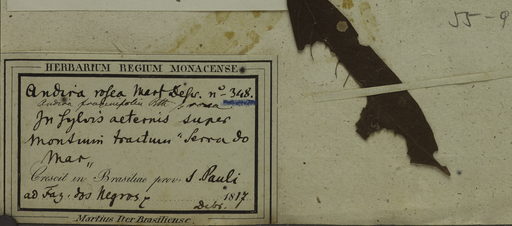 55-9
HERBARIUM REGIUM MONACENSE.
Andira rosea Mart Debr. nº 348.
Andira fraxinifolia Bth
In Sylvis aeternis super
montium tractum "Serra do
Mar"
Crescit in Brasiliae prov. S Pauli
ad Faz. dos Negros, 1817
Debr.
Martius Iter Brasiliense.